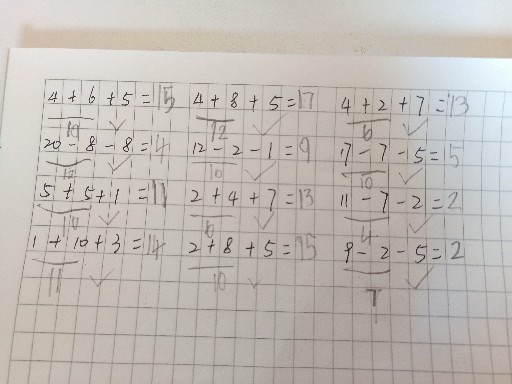 4+6+5=15 4+8+5=17 4+2+7=13
10 12 6
20-8-8=4 12-2-1=9 17-7-5=5
12 10 10
5+5+1=11 2+4+7=13 11-7-2=2
10 6 4
1+10+3=14 2+8+5=15 9-2-5=2
11 10 7